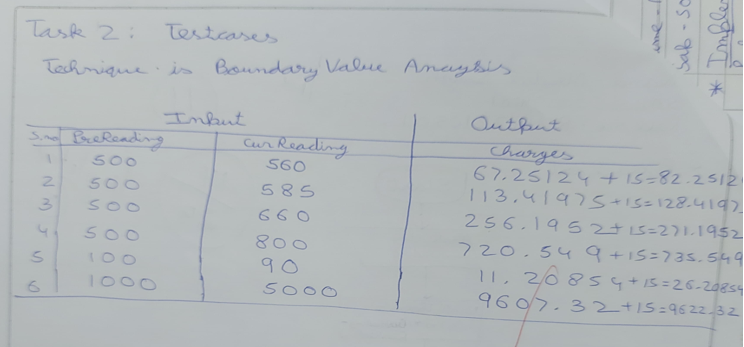 Task 2: Testcases
Technique is Boundary Value Anaysis
Input Output
S.no PreReading CurrReading Charges
1 500 560 67.25124 + 15=82.2512
2 500 585 113.41975+15=128.4197
3 500 660 256.1952+15=271.1952
4 500 800 720.549+15=735.549
5 100 90 11.20854+15=26.20854
6 1000 5000 9607.32+15=9622.32
* Imple